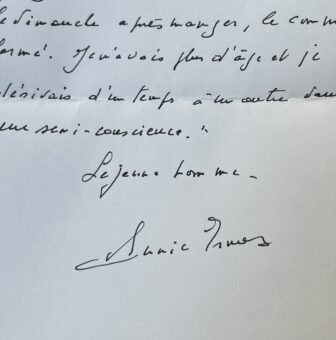 le dimanche après manger, le comm
formé. Je n'avais plus d'âge et je
dérivais d'un temps à un autre dans
une semi-conscience."
Le jeune homme.
Annie Ernaux